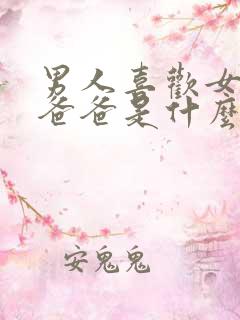 男人喜歡女
爸爸是什麼
安鬼鬼